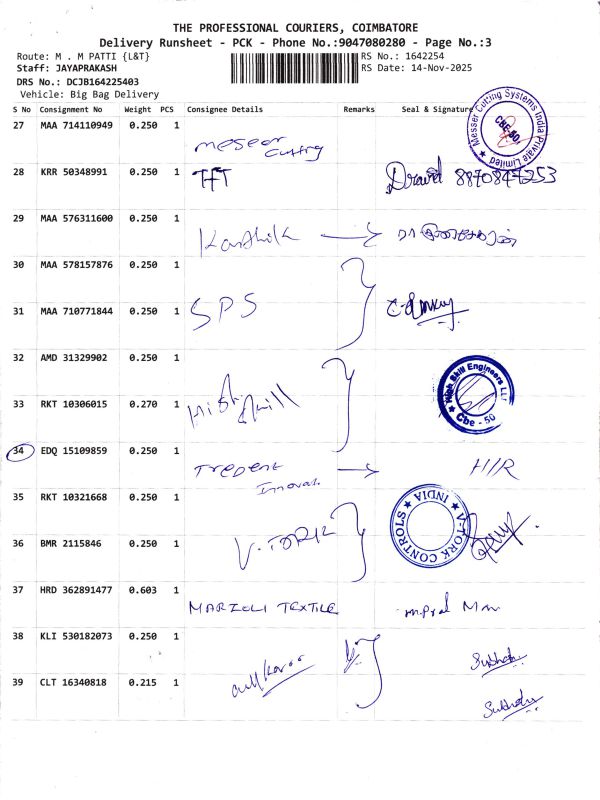 THE PROFESSIONAL COURIERS, COIMBATORE
Delivery Runsheet - PCK - Phone No.:9047080280 - Page No.:3
Route: M . M PATTI {L&T}
RS No.: 1642254
Staff: JAYAPRAKASH
RS Date: 14-Nov-2025
DRS No.: DCJB164225403
Vehicle: Big Bag Delivery
S No Consignment No Weight PCS Consignee Details Remarks Seal & Signature
Messer Cutting Systems India Private Limited
CBE-50
27 MAA 714110949 0.250 1
Messer Cutting
28 KRR 50348991 0.250 1 TFT 8870847253
29 MAA 576311600 0.250 1
Karthik
30 MAA 578157876 0.250 1
31 MAA 710771844 0.250 1 SPS
32 AMD 31329902 0.250 1
High Skill Engineers LLP
Cbe - 50
33 RKT 10306015 0.270 1 Hi Skill
34 EDQ 15109859 0.250 1
H/R
35 RKT 10321668 0.250 1
V-TORK CONTROLS INDIA
36 BMR 2115846 0.250 1 V.TORK
37 HRD 362891477 0.603 1 MARZOLI TEXTILE
38 KLI 530182073 0.250 1
39 CLT 16340818 0.215 1